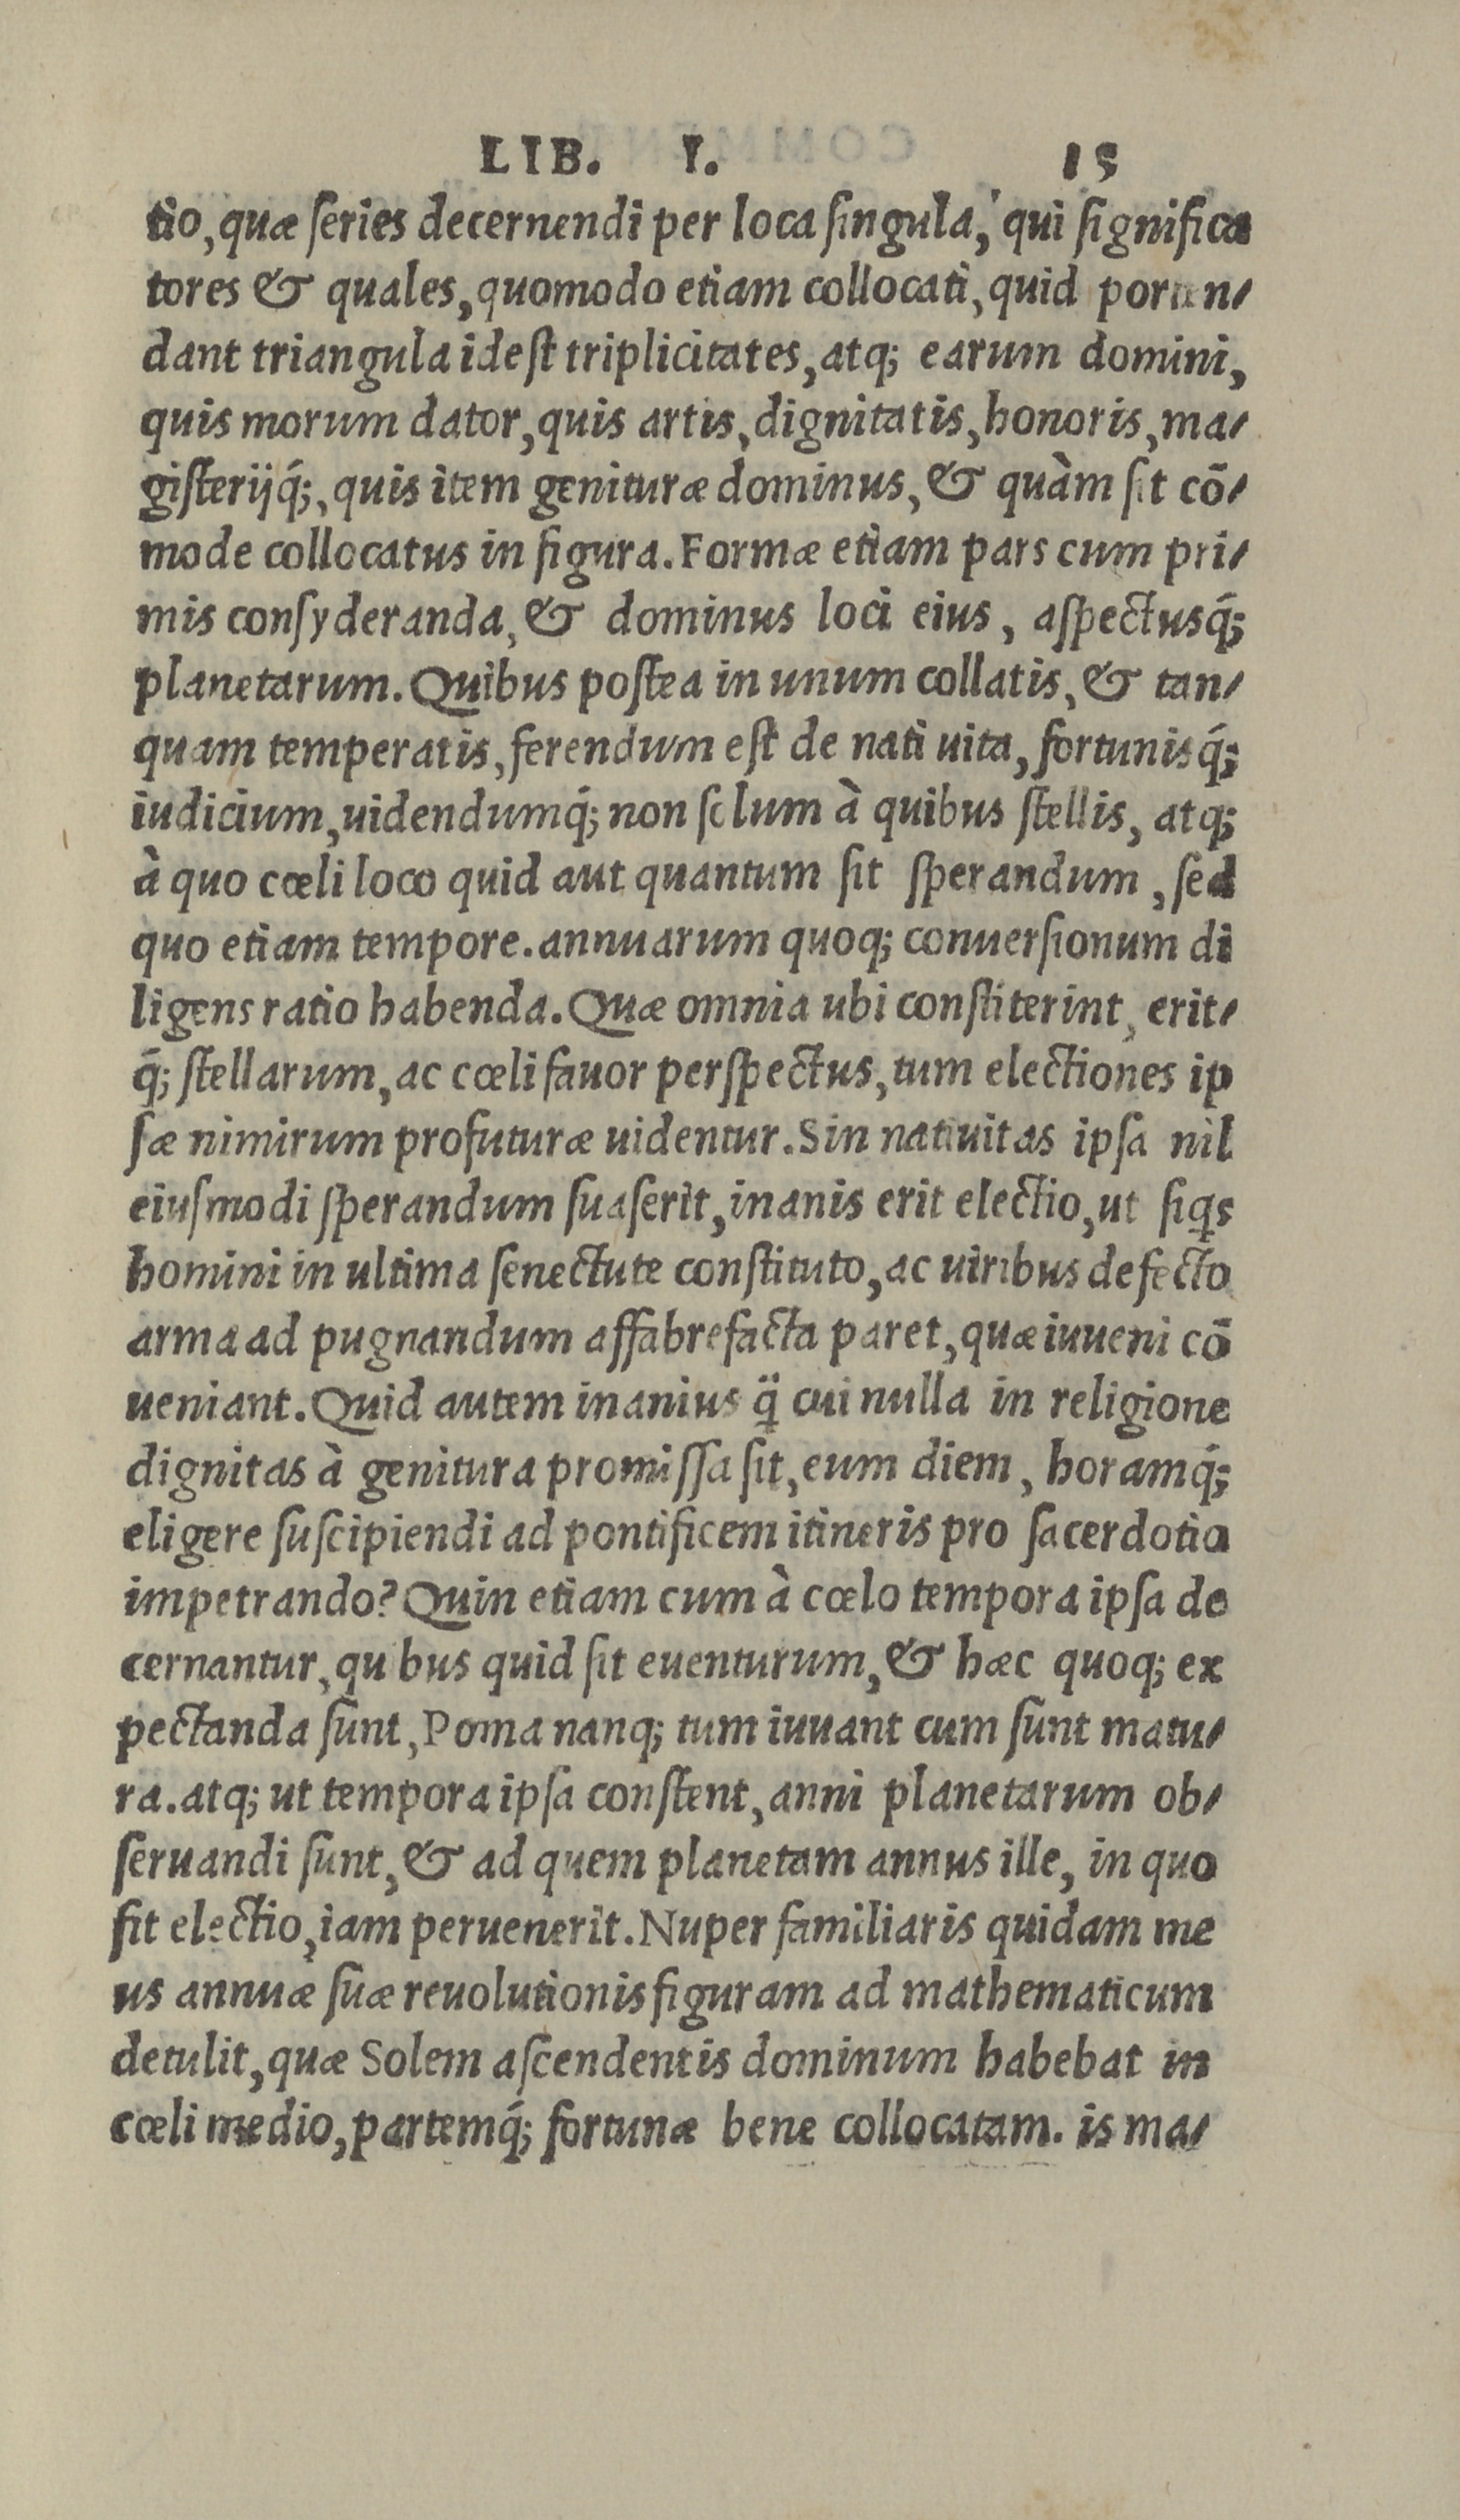 LIB. I. 15
tio, quæ ſeries decernendi per loca ſingula, qui ſignifica
tores & quales, quomodo etiam collocati, quid porten-
dant triangula ideſt triplicitates, atq; earum domini,
quis morum dator, quis artis, dignitatis, honoris, ma-
giſterijq́;, quis item genituræ dominus, & quàm ſit cō-
mode collocatus in figura. Formæ etiam pars cum pri-
mis conſyderanda, & dominus loci eius, aſpectusq́;
planetarum. Quibus poſtea in unum collatis, & tan-
quam temperatis, ferendum eſt de nati uita, fortunisq́;
iudicium, uidendumq́; non ſolum à quibus ſtellis, atq;
à quo cœli loco quid aut quantum ſit ſperandum, ſed
quo etiam tempore. annuarum quoq; conuerſionum di
ligens ratio habenda. Quæ omnia ubi conſtiterint, erit-
q́; ſtellarum, ac cœli fauor perſpectus, tum electiones ip
ſæ nimirum profuturæ uidentur. Sin natiuitas ipſa nil
eiuſmodi ſperandum ſuaſerit, inanis erit electio, ut ſiqs
homini in ultima ſenectute conſtituto, ac uiribus defecto
arma ad pugnandum affabrefacta paret, quæ iuueni cō
ueniant. Quid autem inanius q̈ cui nulla in religione
dignitas à genitura promiſſa ſit, eum diem, horamq́;
eligere ſuſcipiendi ad pontificem itineris pro ſacerdotio
impetrando? Quin etiam cum à cœlo tempora ipſa de
cernantur, qu bus quid ſit euenturum, & hæc quoq; ex
pectanda ſunt, Poma nanq; tum iuuant cum ſunt matu-
ra. atq; ut tempora ipſa conſtent, anni planetarum ob-
ſeruandi ſunt, & ad quem planetam annus ille, in quo
fit electio, iam peruenerit. Nuper familiaris quidam me
us annuæ ſuæ reuolutionis figuram ad mathematicum
detulit, quæ Solem aſcendentis dominum habebat in
cœli medio, partemq́; fortunæ bene collocatam. is ma-